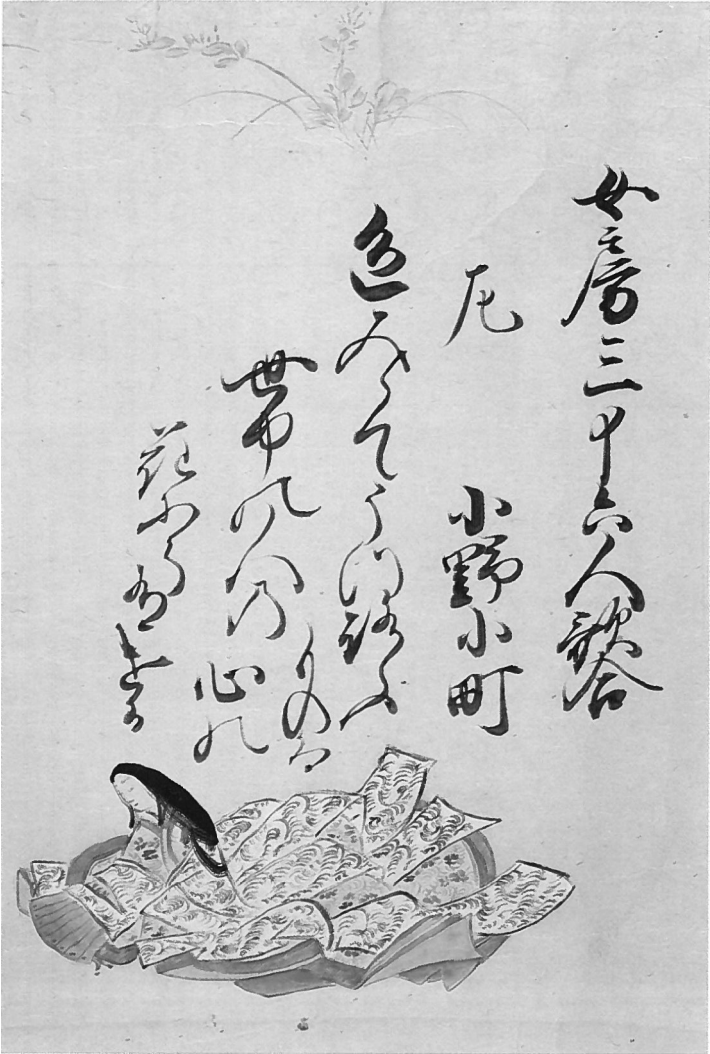 女房三十六人歌合
左　小野小町
色みえてうつろふものは
世中の人の心の
花にそ有ける